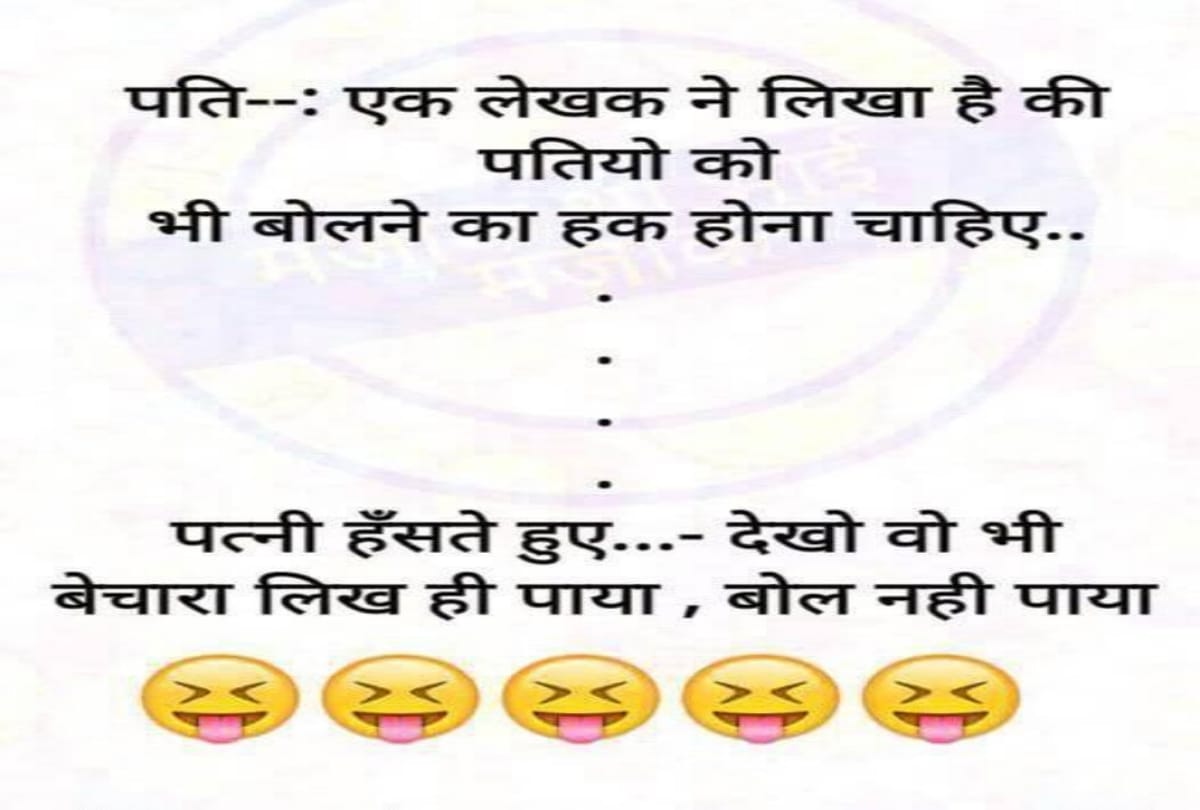 पति--: एक लेखक ने लिखा है की
पतियो को
भी बोलने का हक होना चाहिए..
.
.
.
.
पत्नी हँसते हुए...- देखो वो भी
बेचारा लिख ही पाया , बोल नही पाया